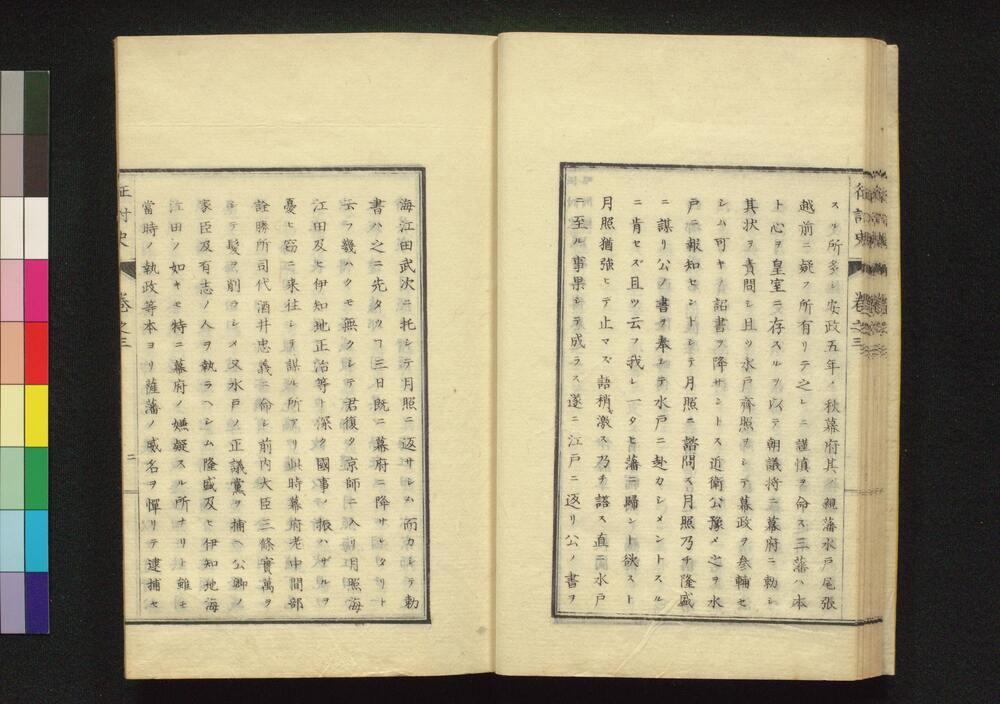 征討史 卷之三
スル所多シ安政五年ノ秋幕府其ノ親藩水戸尾張
越前ニ疑フ所有リテ之レニ謹慎ヲ命ス三藩ハ本
ト心ヲ皇室ニ存スルヲ以テ朝議將ニ幕府ニ勅シ
其状ヲ責問シ且ツ水戸齊照ヲシテ幕政ヲ参輔セ
シム可キノ詔書ヲ降サントス近衛公豫メ之ヲ水
戸ニ報知セントシテ月照ニ諮問ス月照乃チ隆盛
ニ謀リ公ノ書ヲ奉シテ水戸ニ赴カシメントスル
ニ肯セス且ツ云フ我レ一タヒ藩ニ歸ント欲スト
月照猶強ヒテ止マズ語稍激ス乃チ諾ス直ニ水戸
ニ至ル事果シテ成ラス遂ニ江戸ニ返リ公ノ書ヲ
海江田武次ニ托シテ月照ニ返サシム而カシテ勅
書ハ之ニ先タツヿ三日既ニ幕府ニ降サレタリト
云フ幾ハクモ無クシテ君復タ京師ニ入リ月照海
江田及ヒ伊知地正治等ト深ク國事ノ振ハザルヲ
憂ヒ窃ニ来往シテ謀ル所アリ此時幕府老中間部
詮勝所司代酒井忠義ニ命シ前内大臣三條實萬ヲ
シテ髪ヲ削ラシメ又水戸ノ正議黨ヲ捕ヘ公卿ノ
家臣及有志ノ人ヲ執ラヘシム隆盛及ヒ伊知地海
江田ノ如キモ特ニ幕府ノ嫌疑スル所ナリト雖モ
當時ノ執政等本ヨリ薩藩ノ威名ヲ憚リテ逮捕セ
征討史 卷之三 二